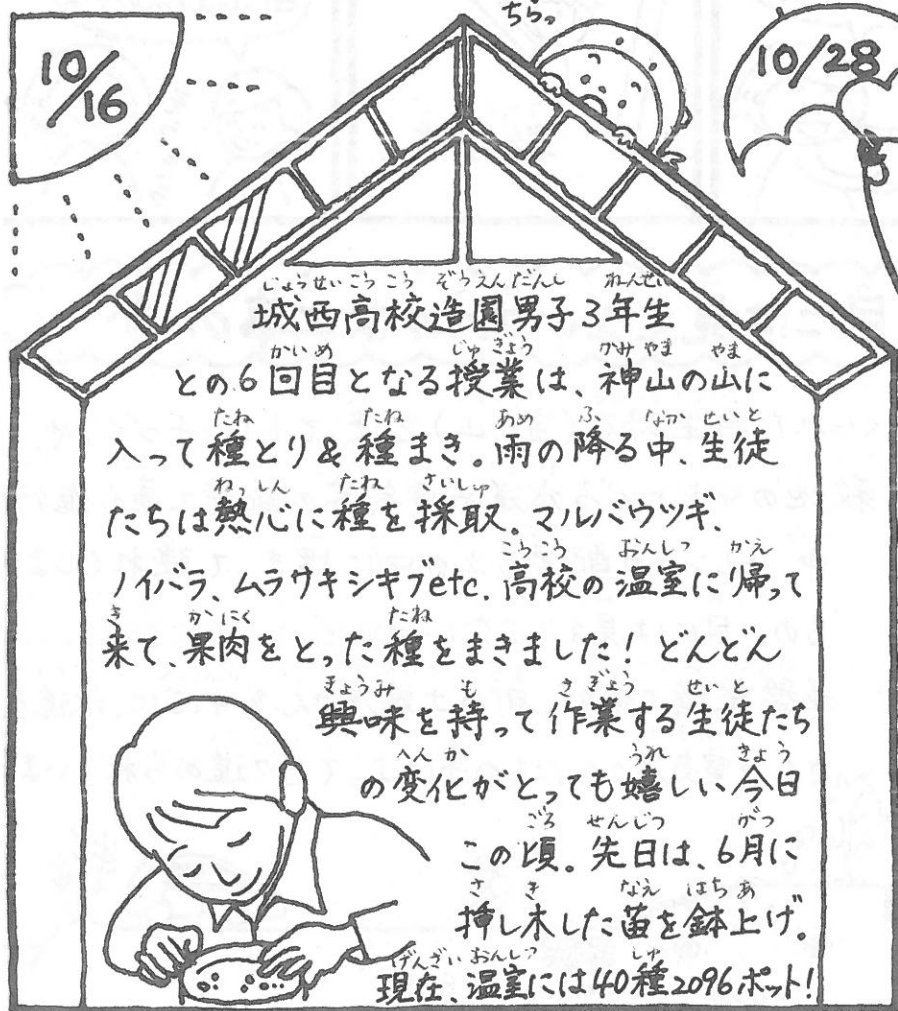 ちらっ
10/16
10/28
城西高校造園男子3年生
との6回目となる授業は、神山の山に
入って種とり&種まき。雨の降る中、生徒
たちは熱心に種を採取。マルバウツギ、
ノイバラ、ムラサキシキブetc. 高校の温室に帰って
来て、果肉をとった種をまきました! どんどん
興味を持って作業する生徒たち
の変化がとっても嬉しい今日
この頃。先日は、6月に
挿し木した苗を鉢上げ。
現在、温室には40種2096ポット!